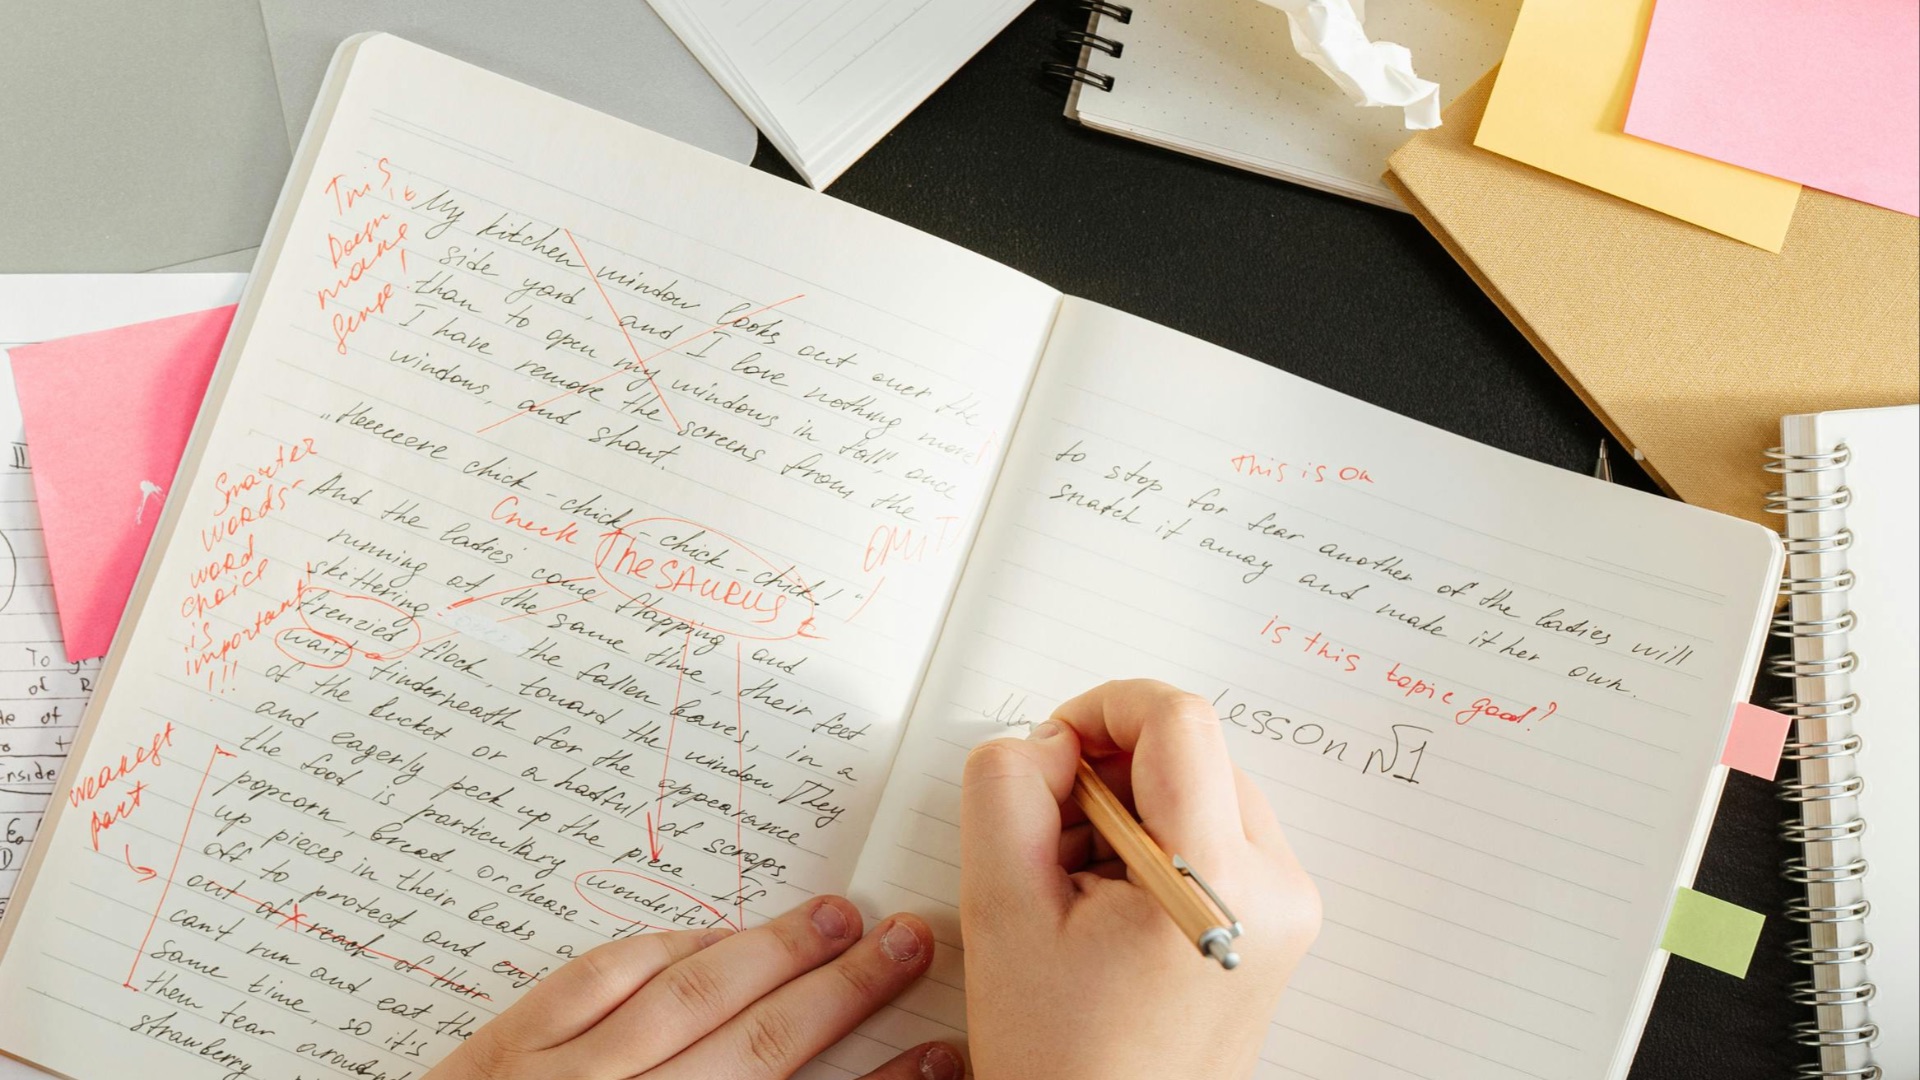 This
Doesn't
make
sense!
My kitchen window looks out over the
side yard, and I love nothing more
than to open my windows in fall, once
I have remove the screens from the
windows, and shout.
„Heeeere chick-chick-chick-chick!"
Check THESAURUS
OMIT
And the ladies come flapping and
running at the same time, their feet
skittering the fallen leaves, in a
frenzied flock, toward the window. They
wait tinderneath for the appearance
of the bucket or a hadful of scraps,
and eagerly peck up the piece. If
the food is particulary wonderful
popcorn, bread, or chease -
up pieces in their beaks
off to protect and
out of reach of their
can't run and eat the
same time, so it's
them tear around
strawberry
Smarter
words-
word
choice
is
important
!!!
weakest
part
This is OK
to stop for fear another of the ladies will
snatch it away and make it her own.
is this topic good?
Lesson №1
To
of R
of
Inside